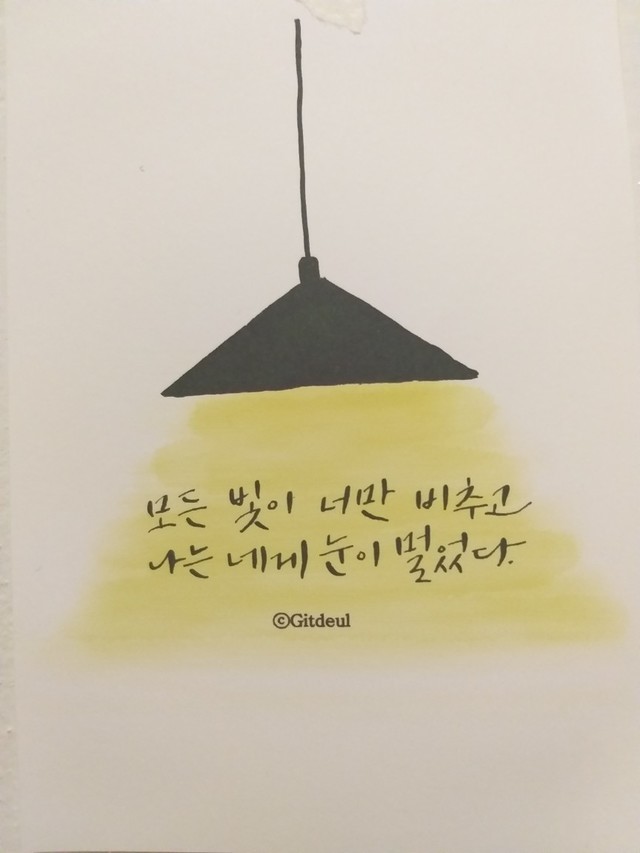 모든 빛이 너만 비추고
나는 네게 눈이 멀었다.
ⓒGitdeul